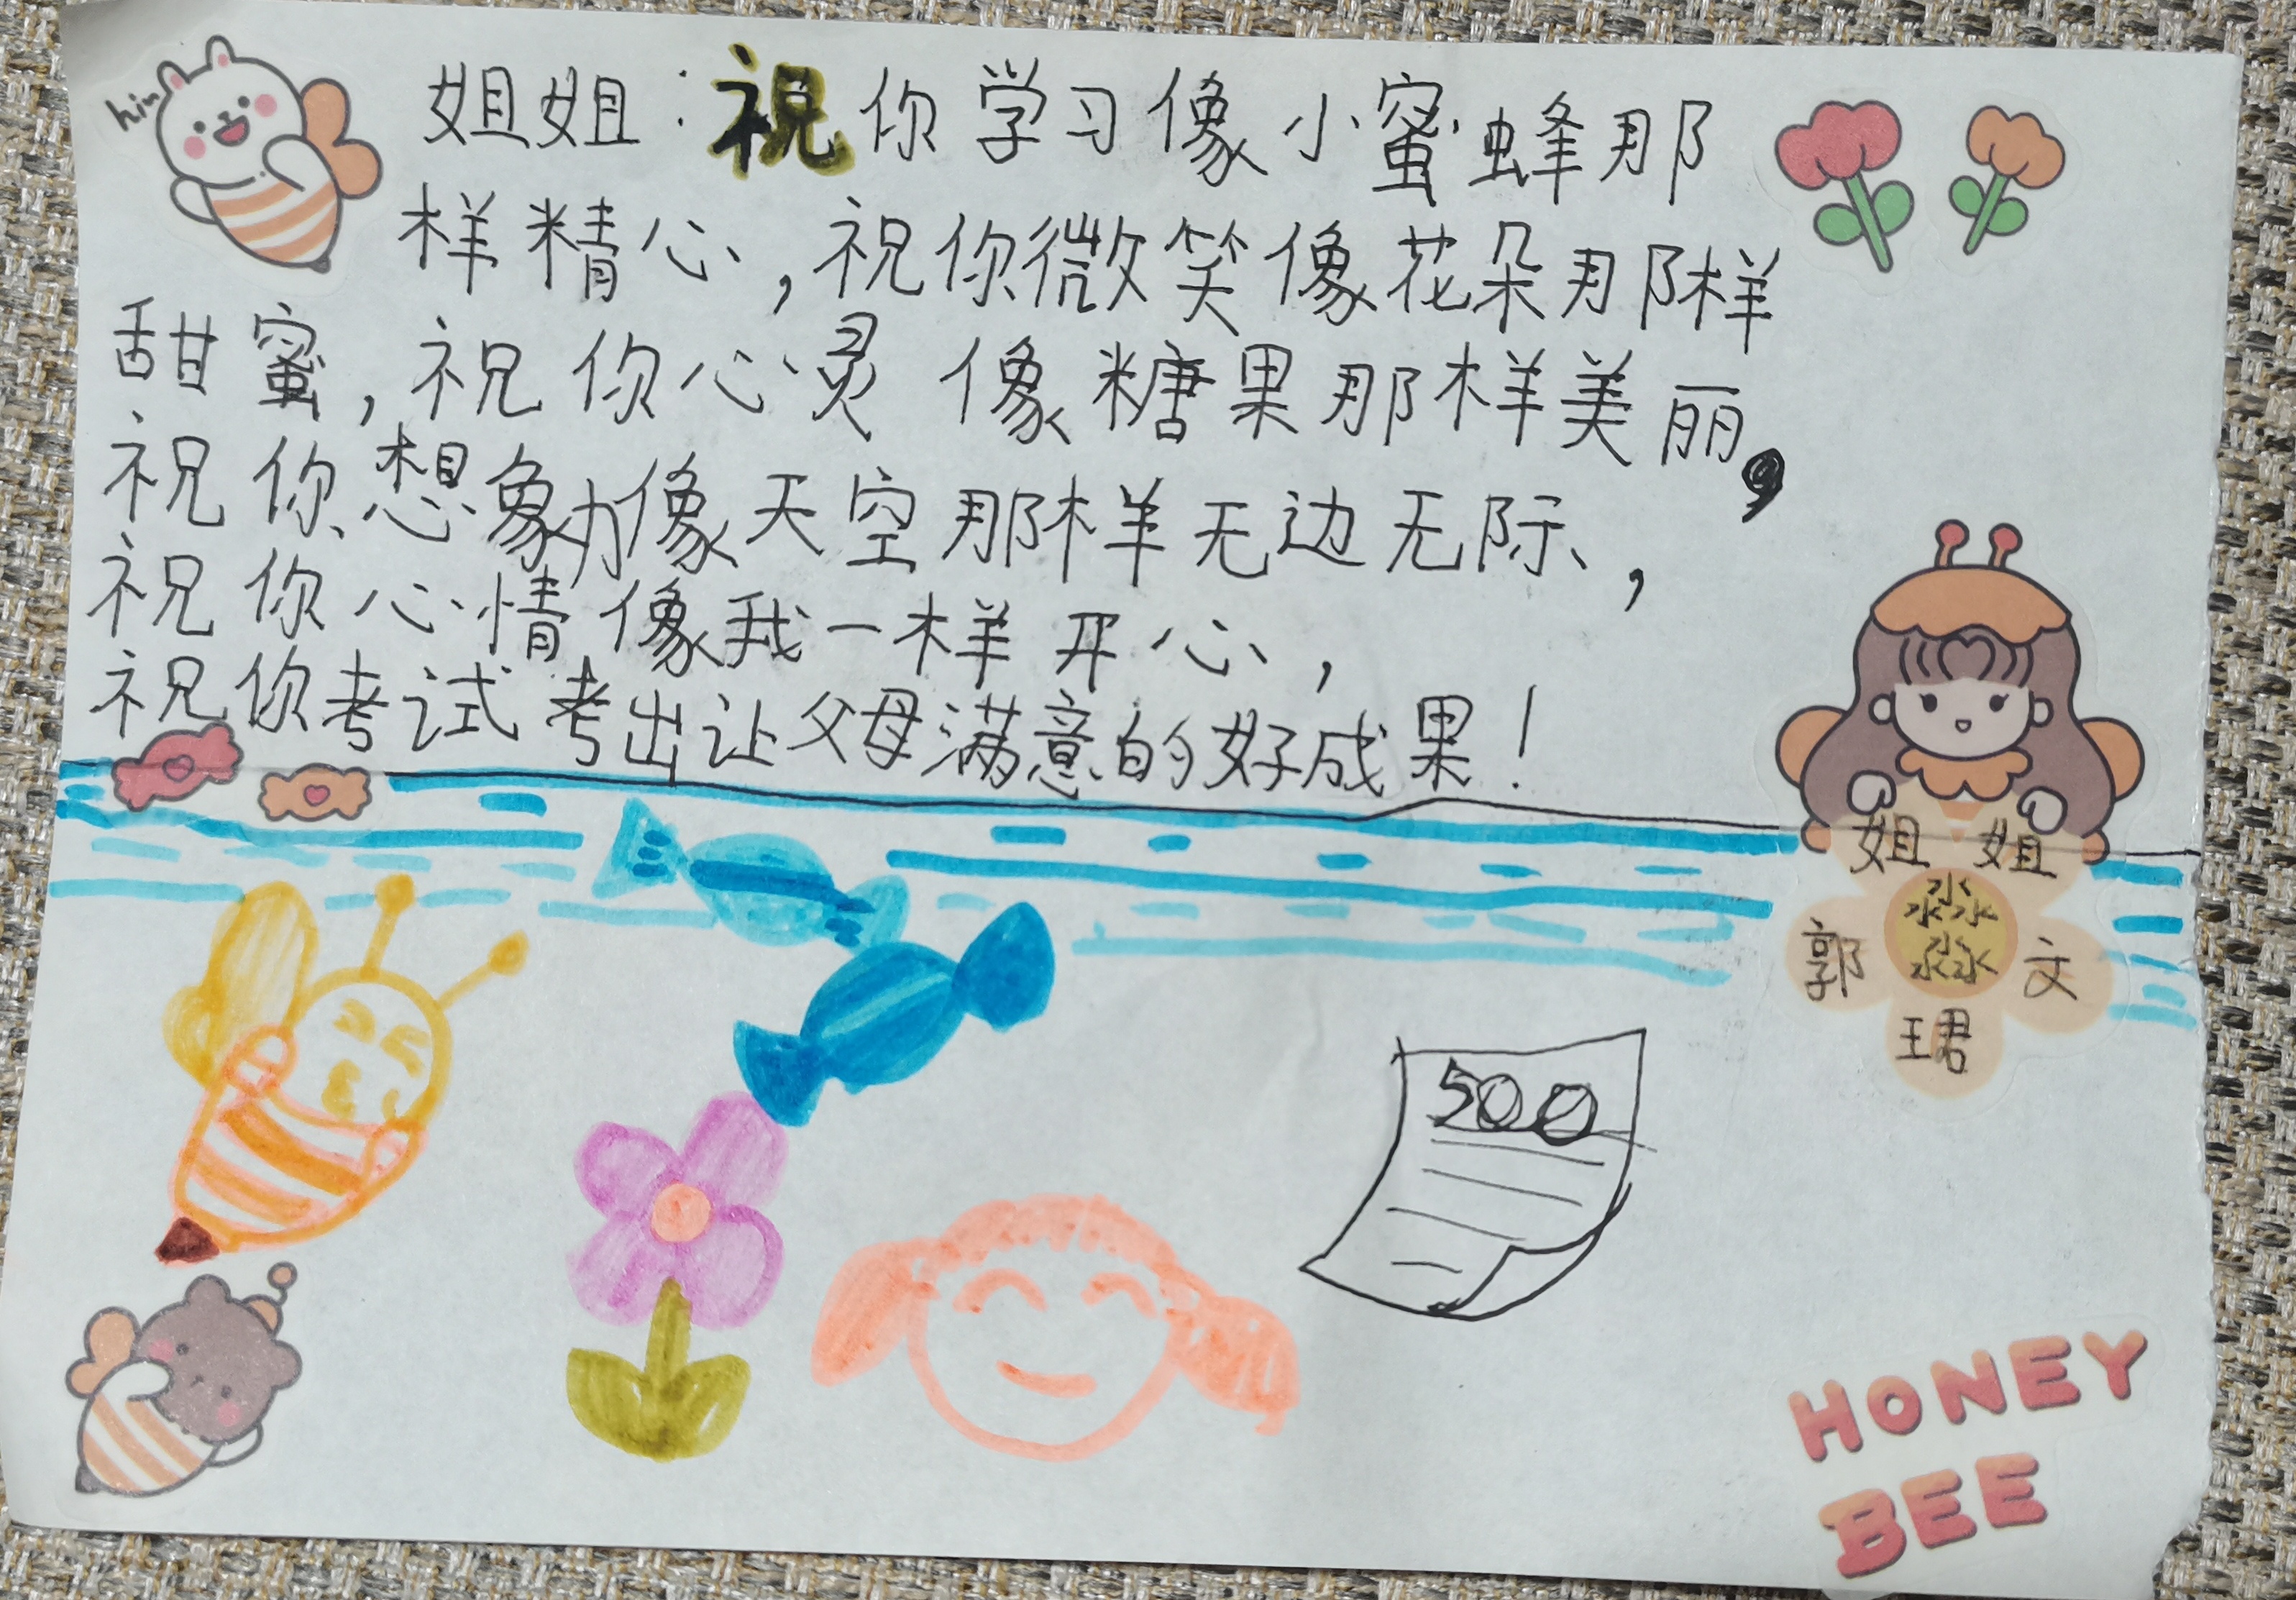 hi
姐姐：祝你学习像小蜜蜂那
样精心，祝你微笑像花朵那样
甜蜜，祝你心灵像糖果那样美丽，
祝你想象力像天空那样无边无际，
祝你心情像我一样开心，
祝你考试考出让父母满意的好成果！
姐姐
淼淼
郭 文
珺
500
HONEY
BEE